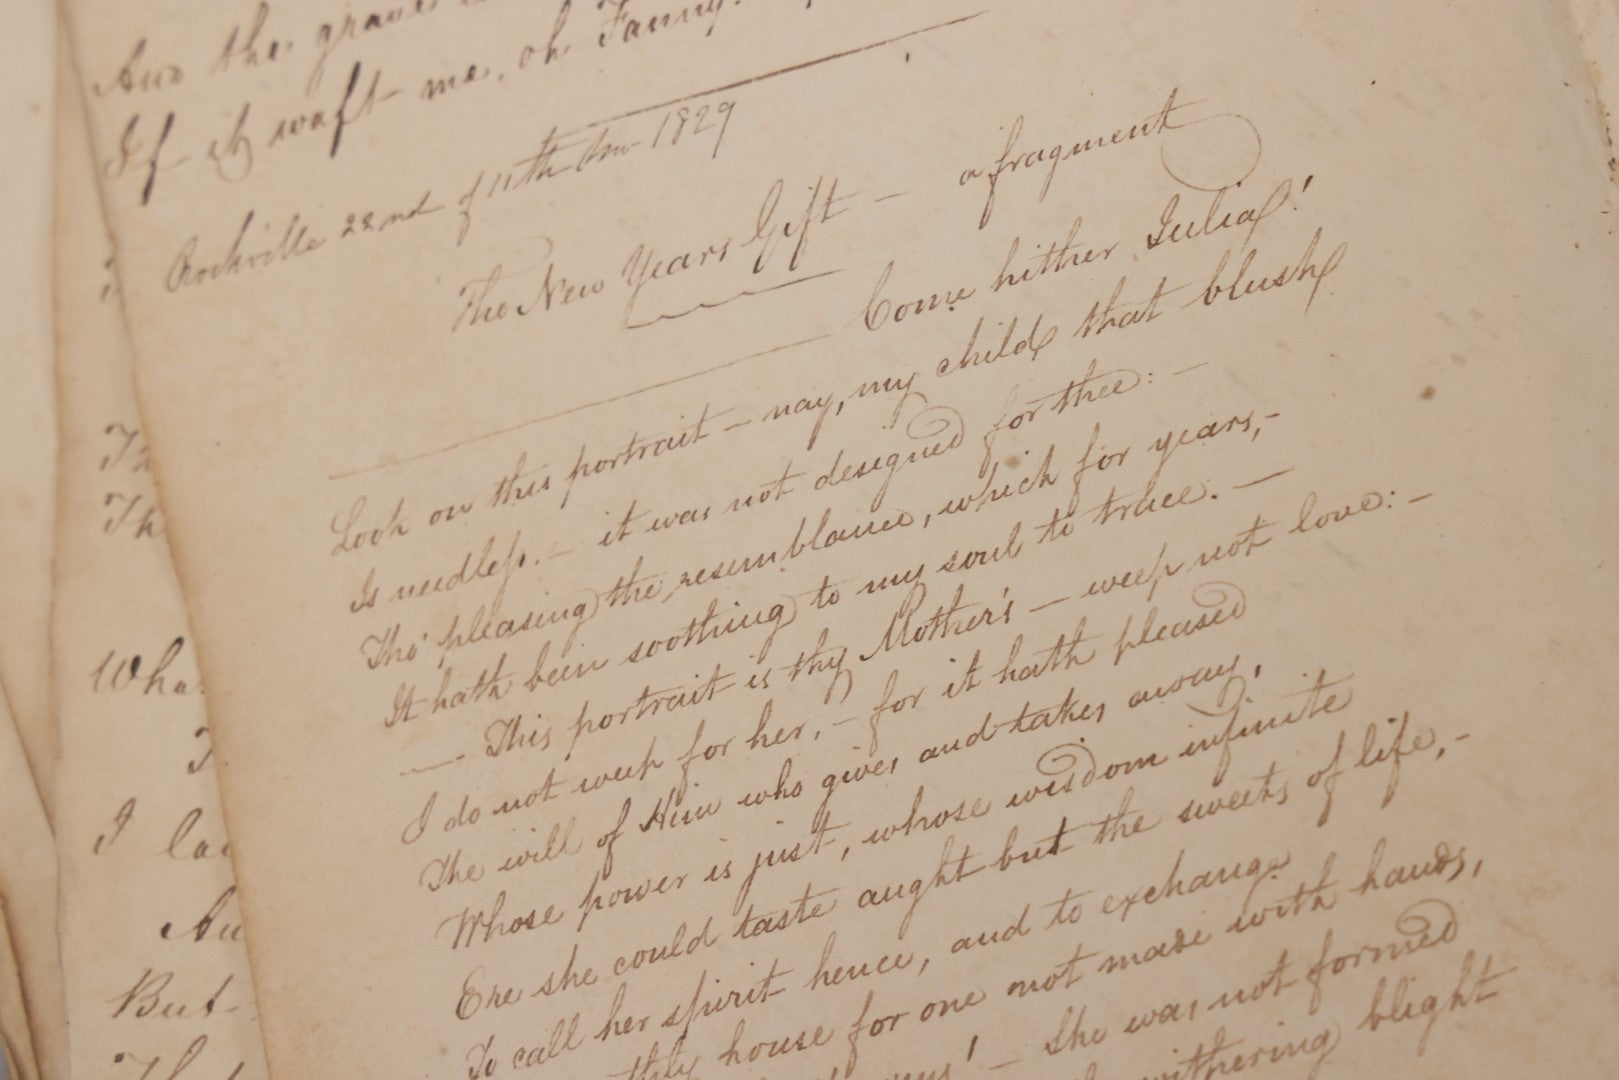 And the grave
If it waft me, oh Fanny.
Rockville 22nd of 11th mo 1829
The New Years Gift — a fragment
Come hither Julia!
Look on this portrait — nay, my child that blush
Is needless. — it was not designed for thee: —
Tho' pleasing the resemblance, which for years, —
It hath been soothing to my soul to trace. —
— This portrait is thy Mother's — weep not love: —
I do not weep for her, — for it hath pleased
The will of Him who gives and takes away,
Whose power is just, whose wisdom infinite
Ere she could taste aught but the sweets of life, —
To call her spirit hence, and to exchange
house for one not made with hands,
! — She was not formed
withering blight
Wha
I
But